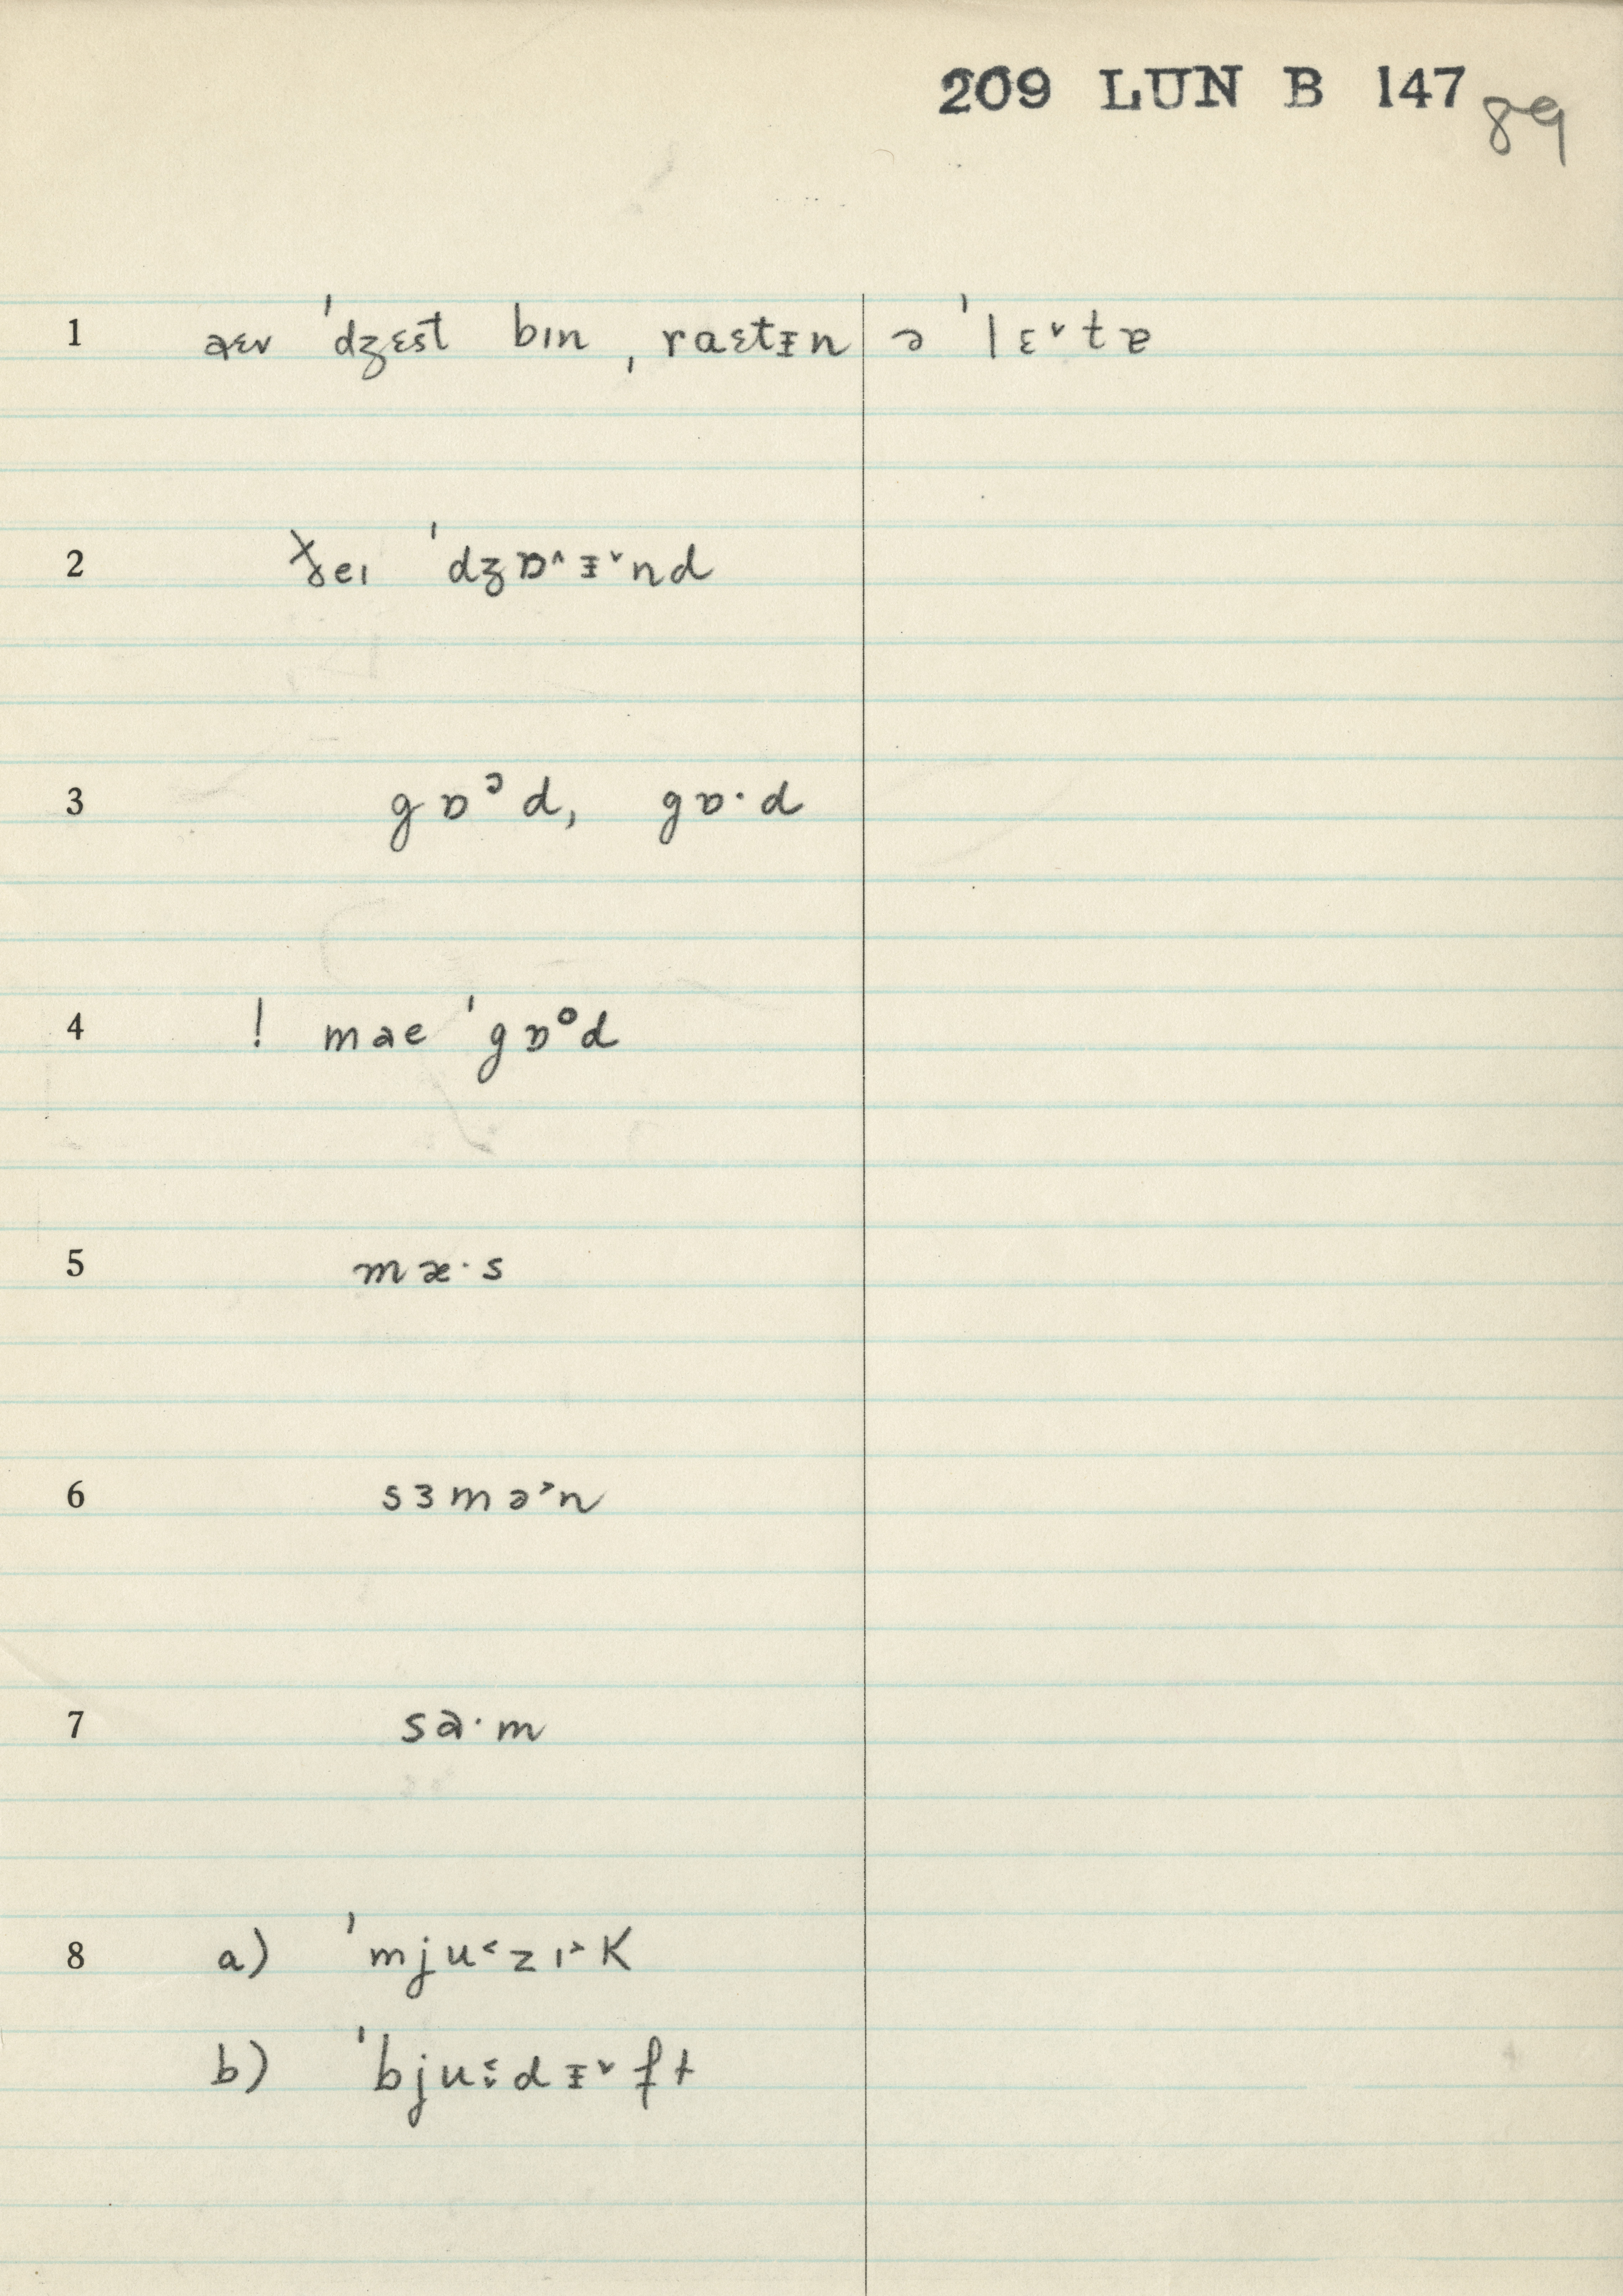 209 LUN B 147
89
1 aɛv ˈdʒɛst bɪn ˌraɛtɪn ə ˈlɛ˅tɐ
2 ðeɪ ˈdʒɒ˄ɪ˅nd
3 gɒᵓd, gɒ·d
4 ! mae ˈgɒ°d
5 mæ·s
6 sɜmə˃n
7 sa·m
8 a) ˈmju˂zɪ˃k
b) ˈbju˂˅dɪ˅ft